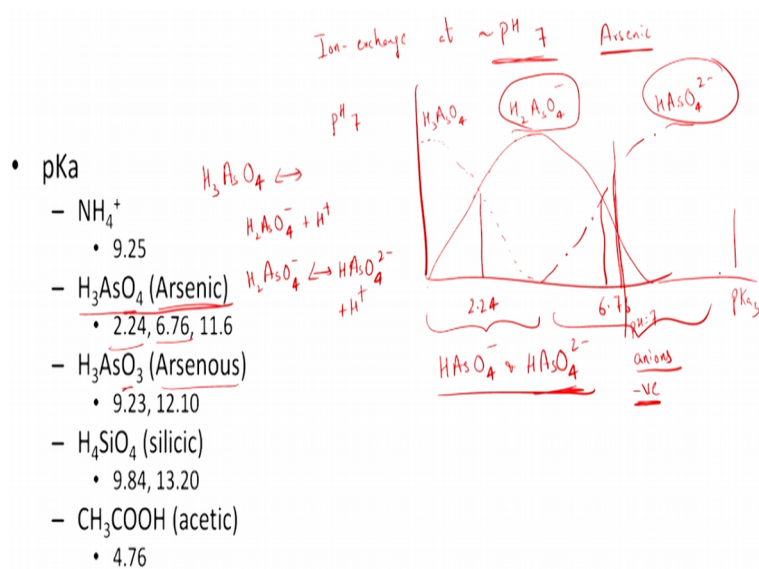 Ion-exchange at ~ pH 7 Arsenic
pH 7
H₃AsO₄ H₂AsO₄⁻ HAsO₄²⁻
H₃AsO₄ ↔
H₂AsO₄⁻ + H⁺
H₂AsO₄⁻ ↔ HAsO₄²⁻
+ H⁺
2.24 6.76 pKa₃
pH=7
HAsO₄⁻ & HAsO₄²⁻ anions
-ve
• pKa
– NH₄⁺
• 9.25
– H₃AsO₄ (Arsenic)
• 2.24, 6.76, 11.6
– H₃AsO₃ (Arsenous)
• 9.23, 12.10
– H₄SiO₄ (silicic)
• 9.84, 13.20
– CH₃COOH (acetic)
• 4.76